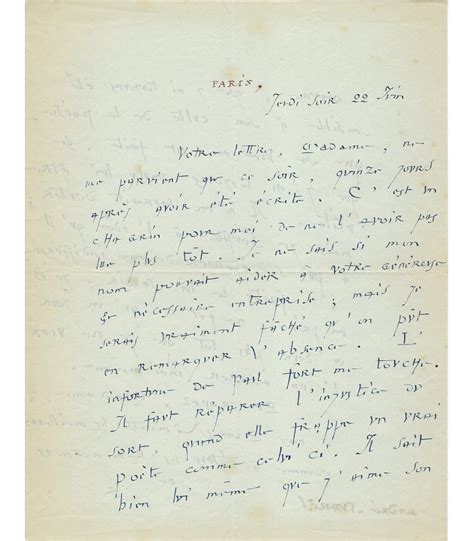 PARIS,
Jeudi soir 22 Juin
Votre lettre, Madame, ne
me parvient que ce soir, quinze jours
après avoir été écrite. C'est un
chagrin pour moi de ne l'avoir pas
lue plus tôt. Je ne sais si mon
nom pouvait aider à votre généreuse
et nécessaire entreprise ; mais je
serais vraiment fâché qu'on pût
en remarquer l'absence. L'
infortune de Paul Fort me touche.
Il faut réparer l'injustice du
sort, quand elle frappe un vrai
poète comme celui ci. Il sait
bien lui même que j'aime son